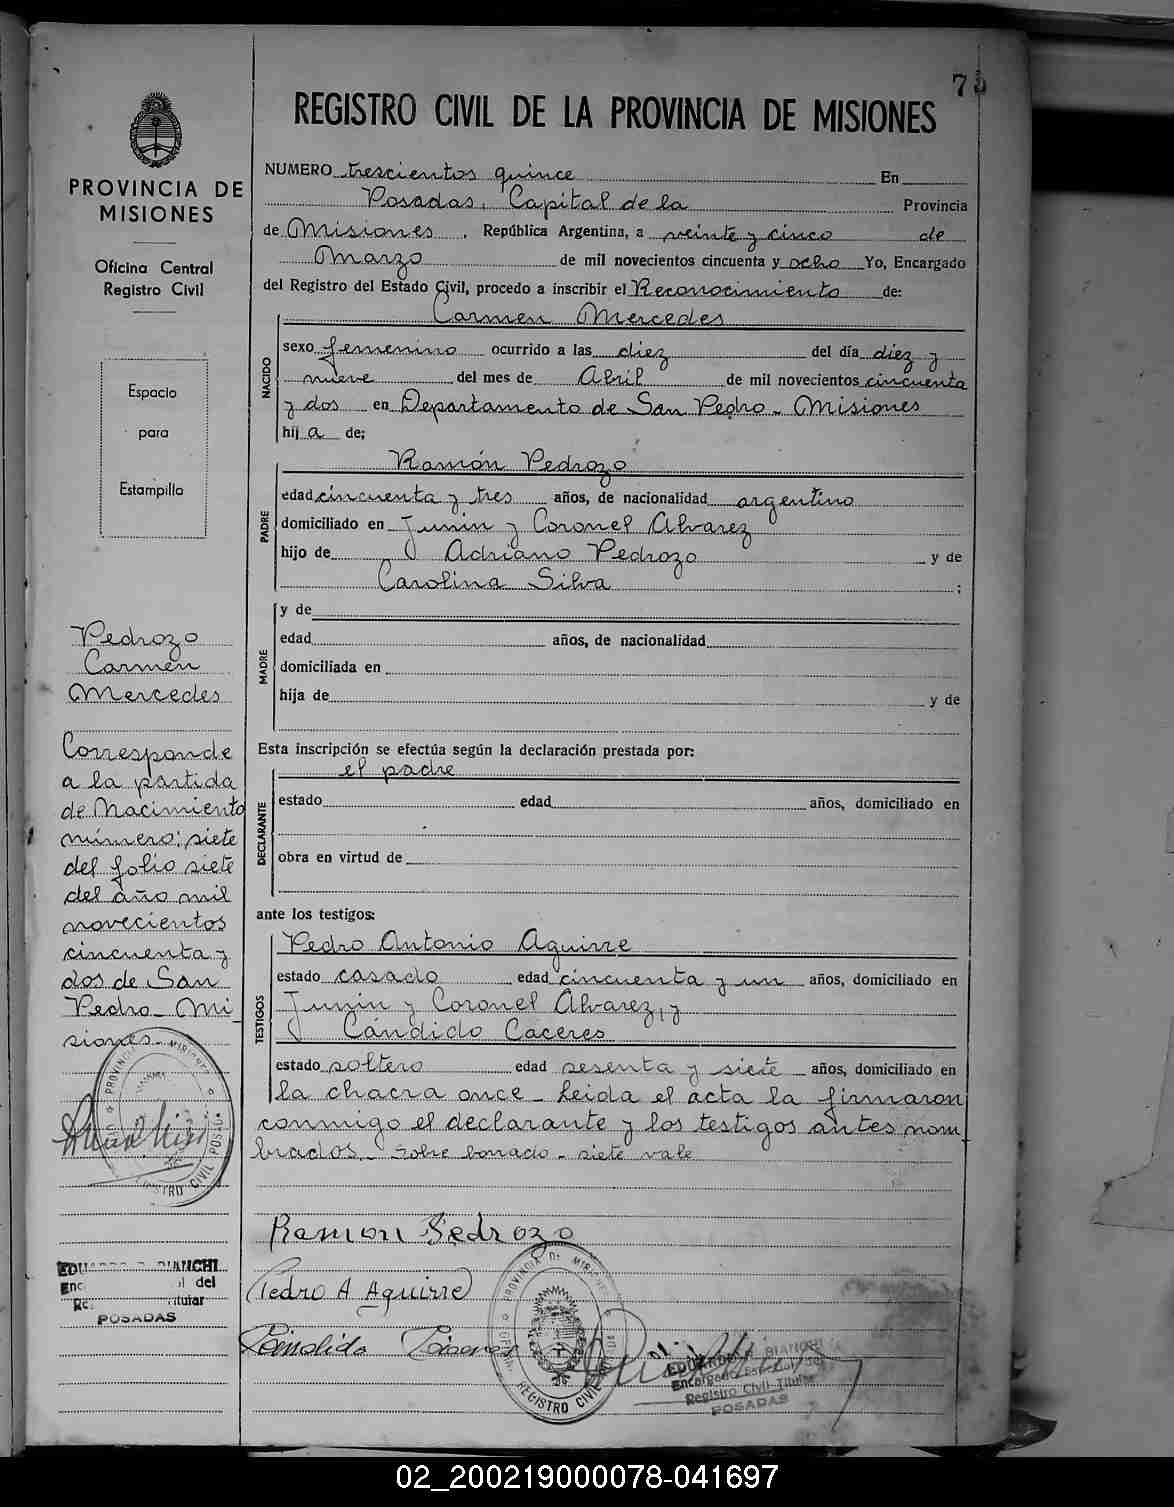 7
REGISTRO CIVIL DE LA PROVINCIA DE MISIONES
PROVINCIA DE
MISIONES
Oficina Central
Registro Civil
Espacio
para
Estampilla
Pedrozo
Carmen
Mercedes
Corresponde
a la partida
de Nacimiento
número: siete
del folio siete
del año mil
novecientos
cincuenta y
dos de San
Pedro - Mi
siones.-
PROVINCIA DE MISIONES
REGISTRO CIVIL POSADAS
BIANCHI
del
Titular
POSADAS
NUMERO trescientos quince En
Posadas, Capital de la Provincia
de Misiones, República Argentina, a veinte y cinco de
Marzo de mil novecientos cincuenta y ocho Yo, Encargado
del Registro del Estado Civil, procedo a inscribir el Reconocimiento de:
Carmen Mercedes
NACIDO
sexo femenino ocurrido a las diez del día diez y
nueve del mes de Abril de mil novecientos cincuenta
y dos en Departamento de San Pedro - Misiones
hij a de:
Ramón Pedrozo
PADRE
edad cincuenta y tres años, de nacionalidad argentino
domiciliado en Junin y Coronel Alvarez
hijo de Adriano Pedrozo y de
Carolina Silva ;
MADRE
y de
edad años, de nacionalidad
domiciliada en
hija de y de
Esta inscripción se efectúa según la declaración prestada por:
el padre
DECLARANTE
estado edad años, domiciliado en
obra en virtud de
ante los testigos:
Pedro Antonio Aguirre
TESTIGOS
estado casado edad cincuenta y un años, domiciliado en
Junin y Coronel Alvarez, y
Cándido Caceres
estado soltero edad sesenta y siete años, domiciliado en
la chacra once - Leida el acta la firmaron
conmigo el declarante y los testigos antes nom
brados.- Sobre borrado - siete vale
Ramon Pedrozo
Pedro A Aguirre
Candido
PROVINCIA DE MISIONES
REGISTRO CIVIL
EDUARDO BIANCHI
Encargado del
Registro Civil Titular
POSADAS
02_200219000078-041697